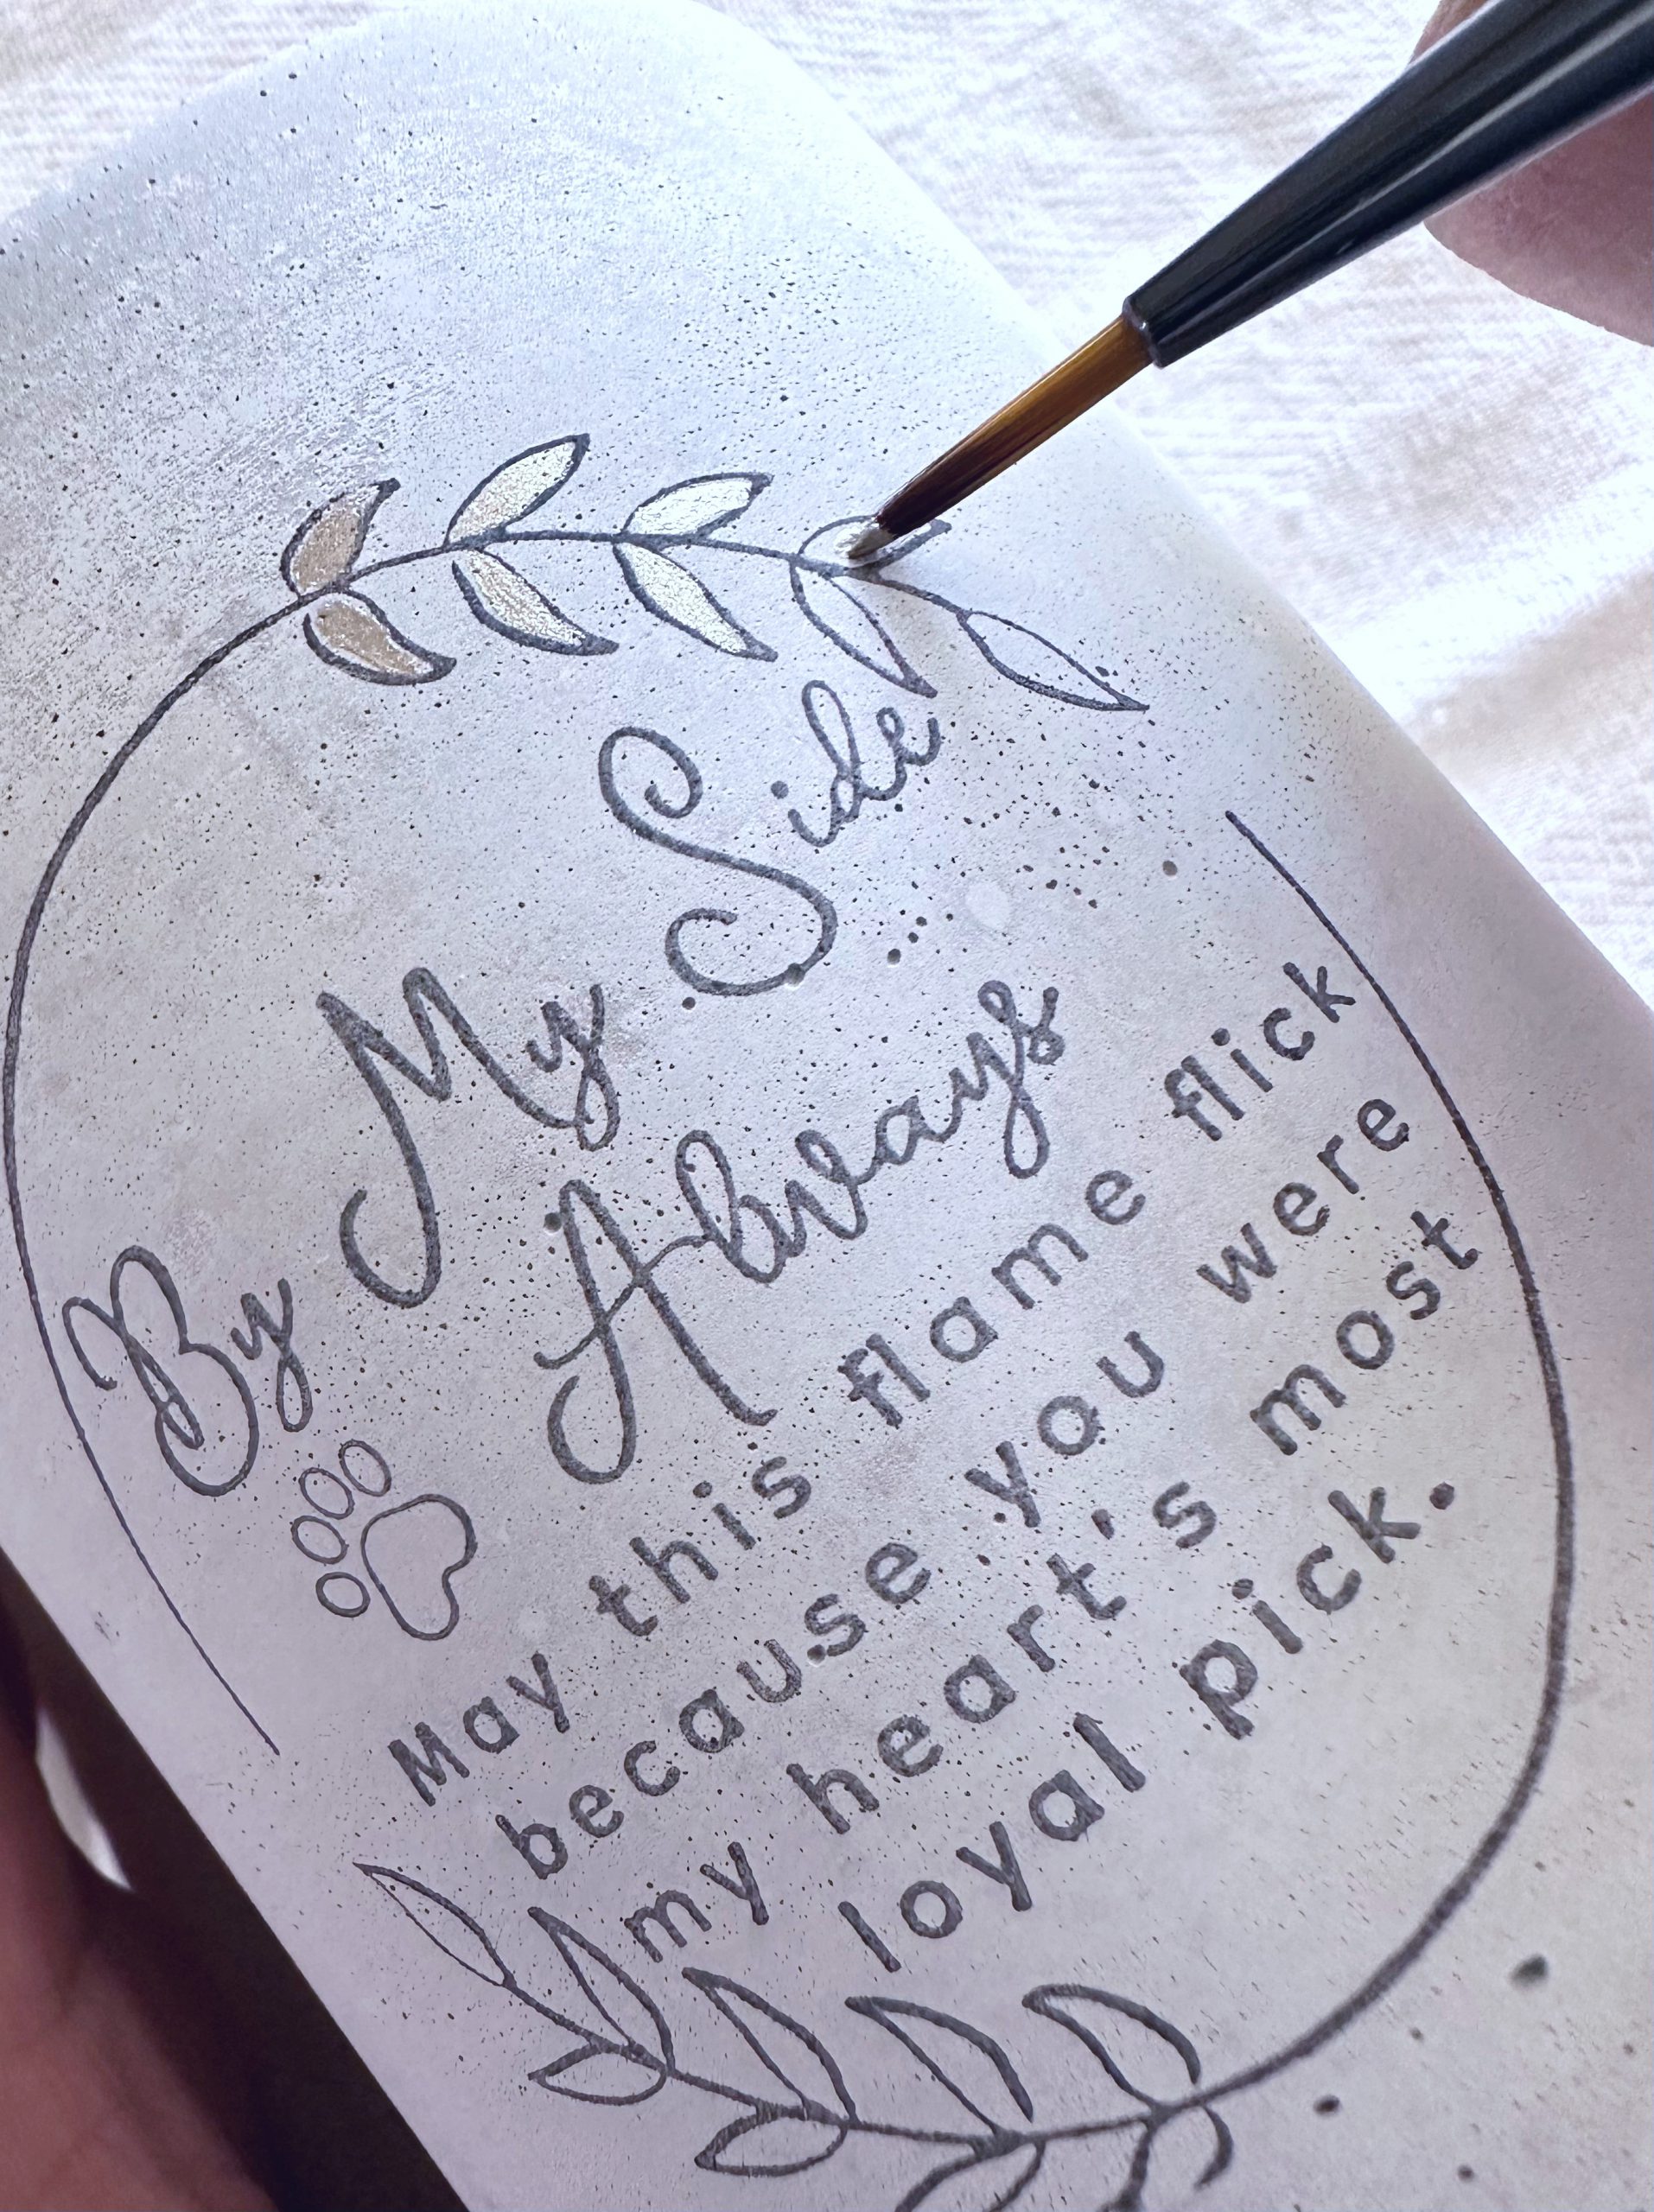 By My Side
Always
May this flame flick
because you were
my heart's most
loyal pick.